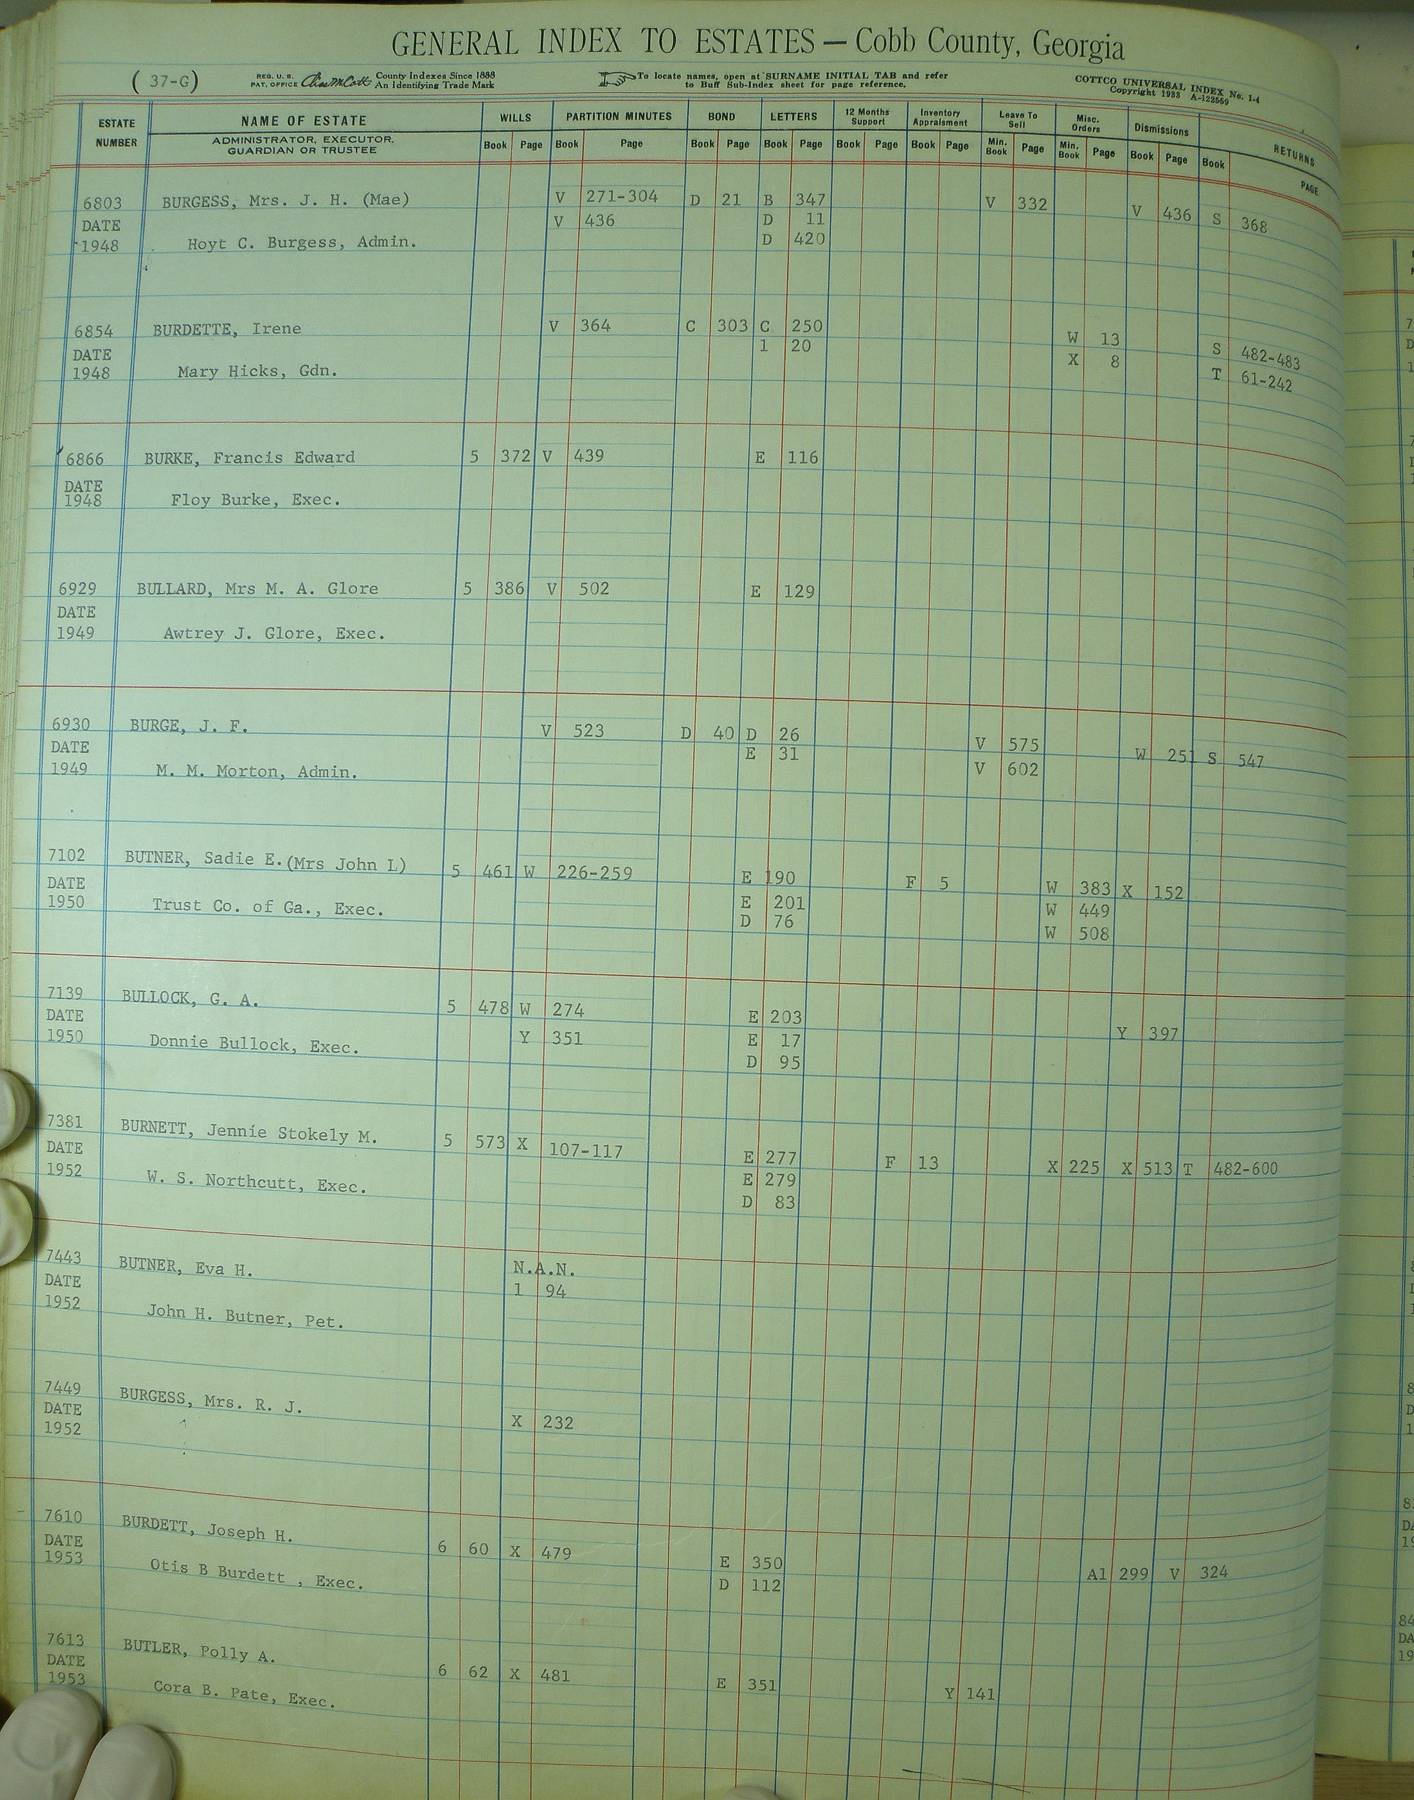 GENERAL INDEX TO ESTATES — Cobb County, Georgia
( 37-G ) REG. U. S. PAT. OFFICE County Indexes Since 1888 An Identifying Trade Mark To locate names, open at SURNAME INITIAL TAB and refer to Buff Sub-Index sheet for page reference. COTTCO UNIVERSAL INDEX No. 1-4 Copyright 1933 A-122559
ESTATE NUMBER NAME OF ESTATE WILLS PARTITION MINUTES BOND LETTERS 12 Months Support Inventory Appraisment Leave To Sell Misc. Orders Dismissions RETURNS
ADMINISTRATOR, EXECUTOR, GUARDIAN OR TRUSTEE Book Page Book Page Book Page Book Page Book Page Book Page Min. Book Page Min. Book Page Book Page Book PAGE
6803 BURGESS, Mrs. J. H. (Mae) V 271-304 D 21 B 347 V 332 V 436 S 368
DATE V 436 D 11
1948 Hoyt C. Burgess, Admin. D 420
6854 BURDETTE, Irene V 364 C 303 C 250 W 13 S 482-483
DATE 1 20 X 8 T 61-242
1948 Mary Hicks, Gdn.
6866 BURKE, Francis Edward 5 372 V 439 E 116
DATE
1948 Floy Burke, Exec.
6929 BULLARD, Mrs M. A. Glore 5 386 V 502 E 129
DATE
1949 Awtrey J. Glore, Exec.
6930 BURGE, J. F. V 523 D 40 D 26 V 575 W 251 S 547
DATE E 31 V 602
1949 M. M. Morton, Admin.
7102 BUTNER, Sadie E. (Mrs John L) 5 461 W 226-259 E 190 F 5 W 383 X 152
DATE E 201 W 449
1950 Trust Co. of Ga., Exec. D 76 W 508
7139 BULLOCK, G. A. 5 478 W 274 E 203 Y 397
DATE Y 351 E 17
1950 Donnie Bullock, Exec. D 95
7381 BURNETT, Jennie Stokely M. 5 573 X 107-117 E 277 F 13 X 225 X 513 T 482-600
DATE E 279
1952 W. S. Northcutt, Exec. D 83
7443 BUTNER, Eva H. N.A.N.
DATE 1 94
1952 John H. Butner, Pet.
7449 BURGESS, Mrs. R. J. X 232
DATE
1952
7610 BURDETT, Joseph H. 6 60 X 479 E 350 A1 299 V 324
DATE D 112
1953 Otis B Burdett , Exec.
7613 BUTLER, Polly A. 6 62 X 481 E 351 Y 141
DATE
1953 Cora B. Pate, Exec.